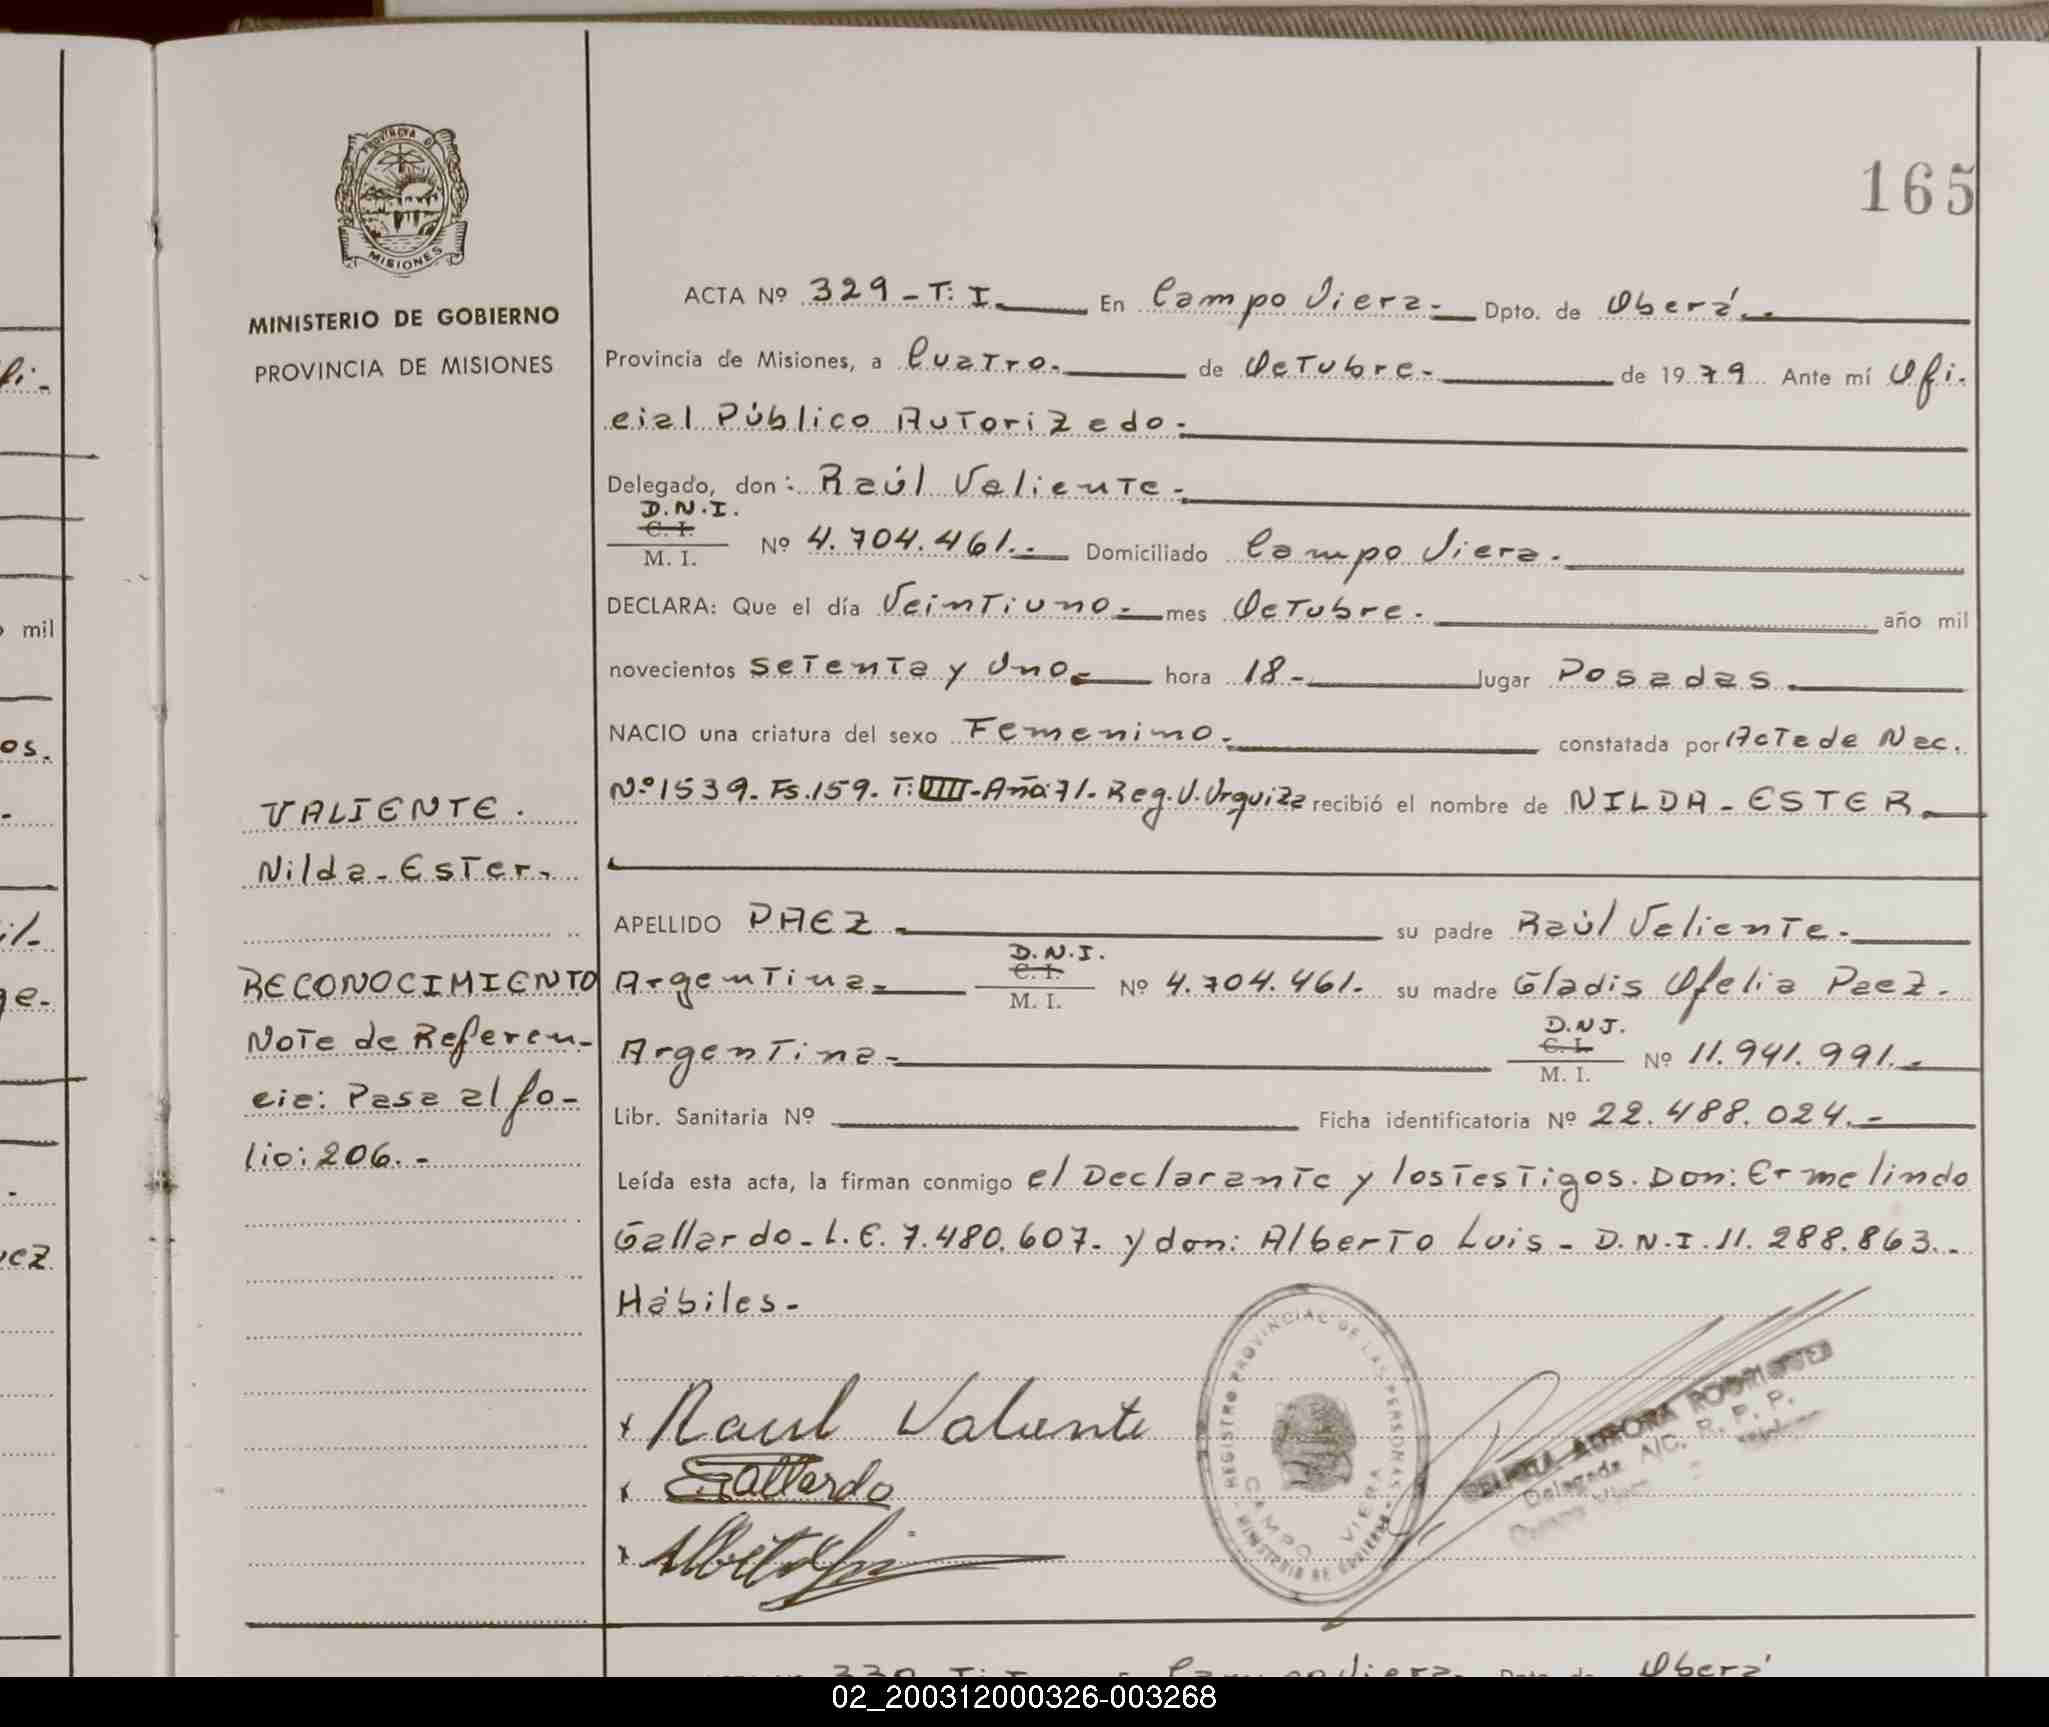 165
PROVINCIA D
MISIONES
MINISTERIO DE GOBIERNO
PROVINCIA DE MISIONES
ACTA Nº 329-T: I. En Campo Viera- Dpto. de Oberá.-
Provincia de Misiones, a Cuatro.- de Octubre.- de 19 79 Ante mí Ofi-
cial Público Autorizado.-
Delegado, don: Raúl Valiente.-
D.N.I.
C. I.
M. I. Nº 4.704.461.- Domiciliado Campo Viera.-
DECLARA: Que el día Veintiuno.- mes Octubre.- año mil
novecientos Setenta y Uno.- hora 18.- lugar Posadas.-
NACIO una criatura del sexo Femenino.- constatada por Acta de Nac.
Nº 1539. Fs. 159. T: VIII-Año: 71. Reg. V. Urquiza recibió el nombre de NILDA-ESTER.-
APELLIDO PAEZ.- su padre Raúl Valiente.-
Argentina.- D.N.I.
C. I.
M. I. Nº 4.704.461.- su madre Gladis Ofelia Paez.-
Argentina.- D.N.I.
C. I.
M. I. Nº 11.941.991.-
Libr. Sanitaria Nº Ficha identificatoria Nº 22.488.024.-
Leída esta acta, la firman conmigo el Declarante y los Testigos. Don: Ermelindo
Gallardo- L.E. 7.480.607. y don: Alberto Luis- D.N.I. 11.288.863.-
Hábiles.-
VALIENTE.
Nilda-Ester.
RECONOCIMIENTO
Nota de Referen-
cia: Pasa al fo-
lio: 206.-
x Raul Valiente
x Gallardo
x
REGISTRO PROVINCIAL DE LAS PERSONAS
MINISTERIO DE GOBIERNO
CAMPO VIERA
AURORA RODRIGUEZ
Delegada A/C. R. P. P.
fi-
mil
os.
il-
ge-
uez
330 T: I Campo Viera Oberá
02_200312000326-003268